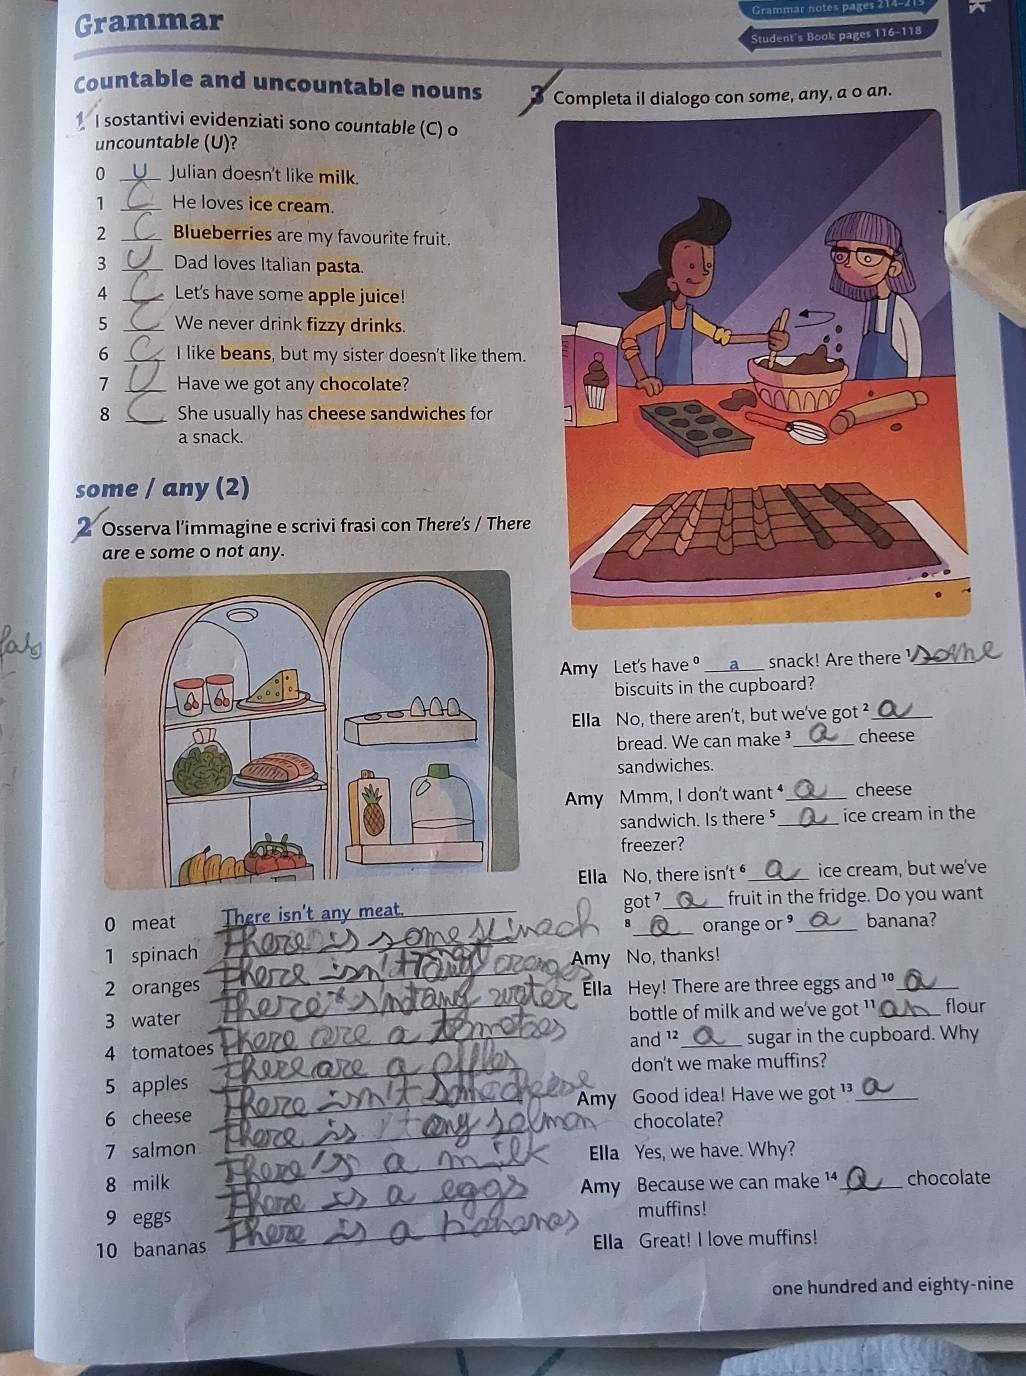 Grammar
Grammar notes pages 214-215
Student's Book pages 116-118
Countable and uncountable nouns
1 I sostantivi evidenziati sono countable (C) o
uncountable (U)?
0 U Julian doesn't like milk.
1 C He loves ice cream.
2 C Blueberries are my favourite fruit.
3 U Dad loves Italian pasta.
4 C Let's have some apple juice!
5 C We never drink fizzy drinks.
6 C I like beans, but my sister doesn't like them.
7 U Have we got any chocolate?
8 C She usually has cheese sandwiches for
a snack.
some / any (2)
2 Osserva l'immagine e scrivi frasi con There's / There
are e some o not any.
0 meat There isn't any meat.
1 spinach There is some spinach
2 oranges There isn't any oranges
3 water There isn't any water
4 tomatoes There are a tomatoes
5 apples There are a apples
6 cheese There isn't some cheese
7 salmon There is any salmon
8 milk There's a milk
9 eggs There is a eggs
10 bananas There is a bananas
3 Completa il dialogo con some, any, a o an.
Amy Let's have 0 a snack! Are there 1 some
biscuits in the cupboard?
Ella No, there aren't, but we've got 2 a
bread. We can make 3 a cheese
sandwiches.
Amy Mmm, I don't want 4 a cheese
sandwich. Is there 5 a ice cream in the
freezer?
Ella No, there isn't 6 a ice cream, but we've
got 7 a fruit in the fridge. Do you want
8 a orange or 9 a banana?
Amy No, thanks!
Ella Hey! There are three eggs and 10 a
bottle of milk and we've got 11 an flour
and 12 a sugar in the cupboard. Why
don't we make muffins?
Amy Good idea! Have we got 13 a
chocolate?
Ella Yes, we have. Why?
Amy Because we can make 14 a chocolate
muffins!
Ella Great! I love muffins!
one hundred and eighty-nine